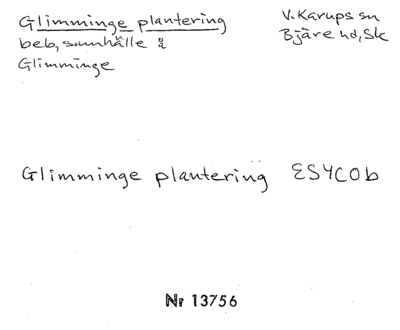 Glimminge plantering
beb, samhälle å
Glimminge
V. Karups sn
Bjäre hd, Sk
Glimminge plantering ESYCOb
Nr 13756